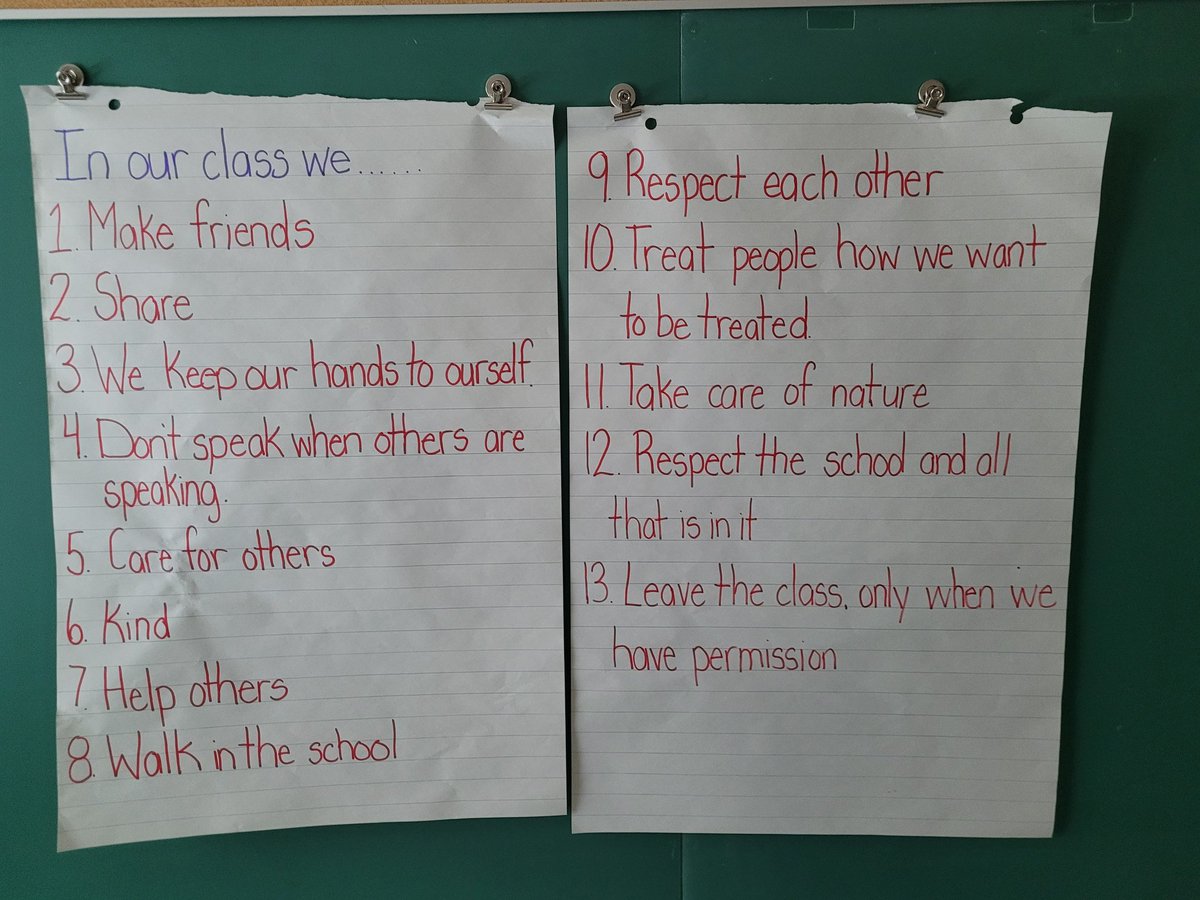 In our class we......
1. Make friends
2. Share
3. We keep our hands to ourself.
4. Don't speak when others are
speaking.
5. Care for others
6. Kind
7. Help others
8. Walk in the school
9. Respect each other
10. Treat people how we want
to be treated.
11. Take care of nature
12. Respect the school and all
that is in it
13. Leave the class, only when we
have permission